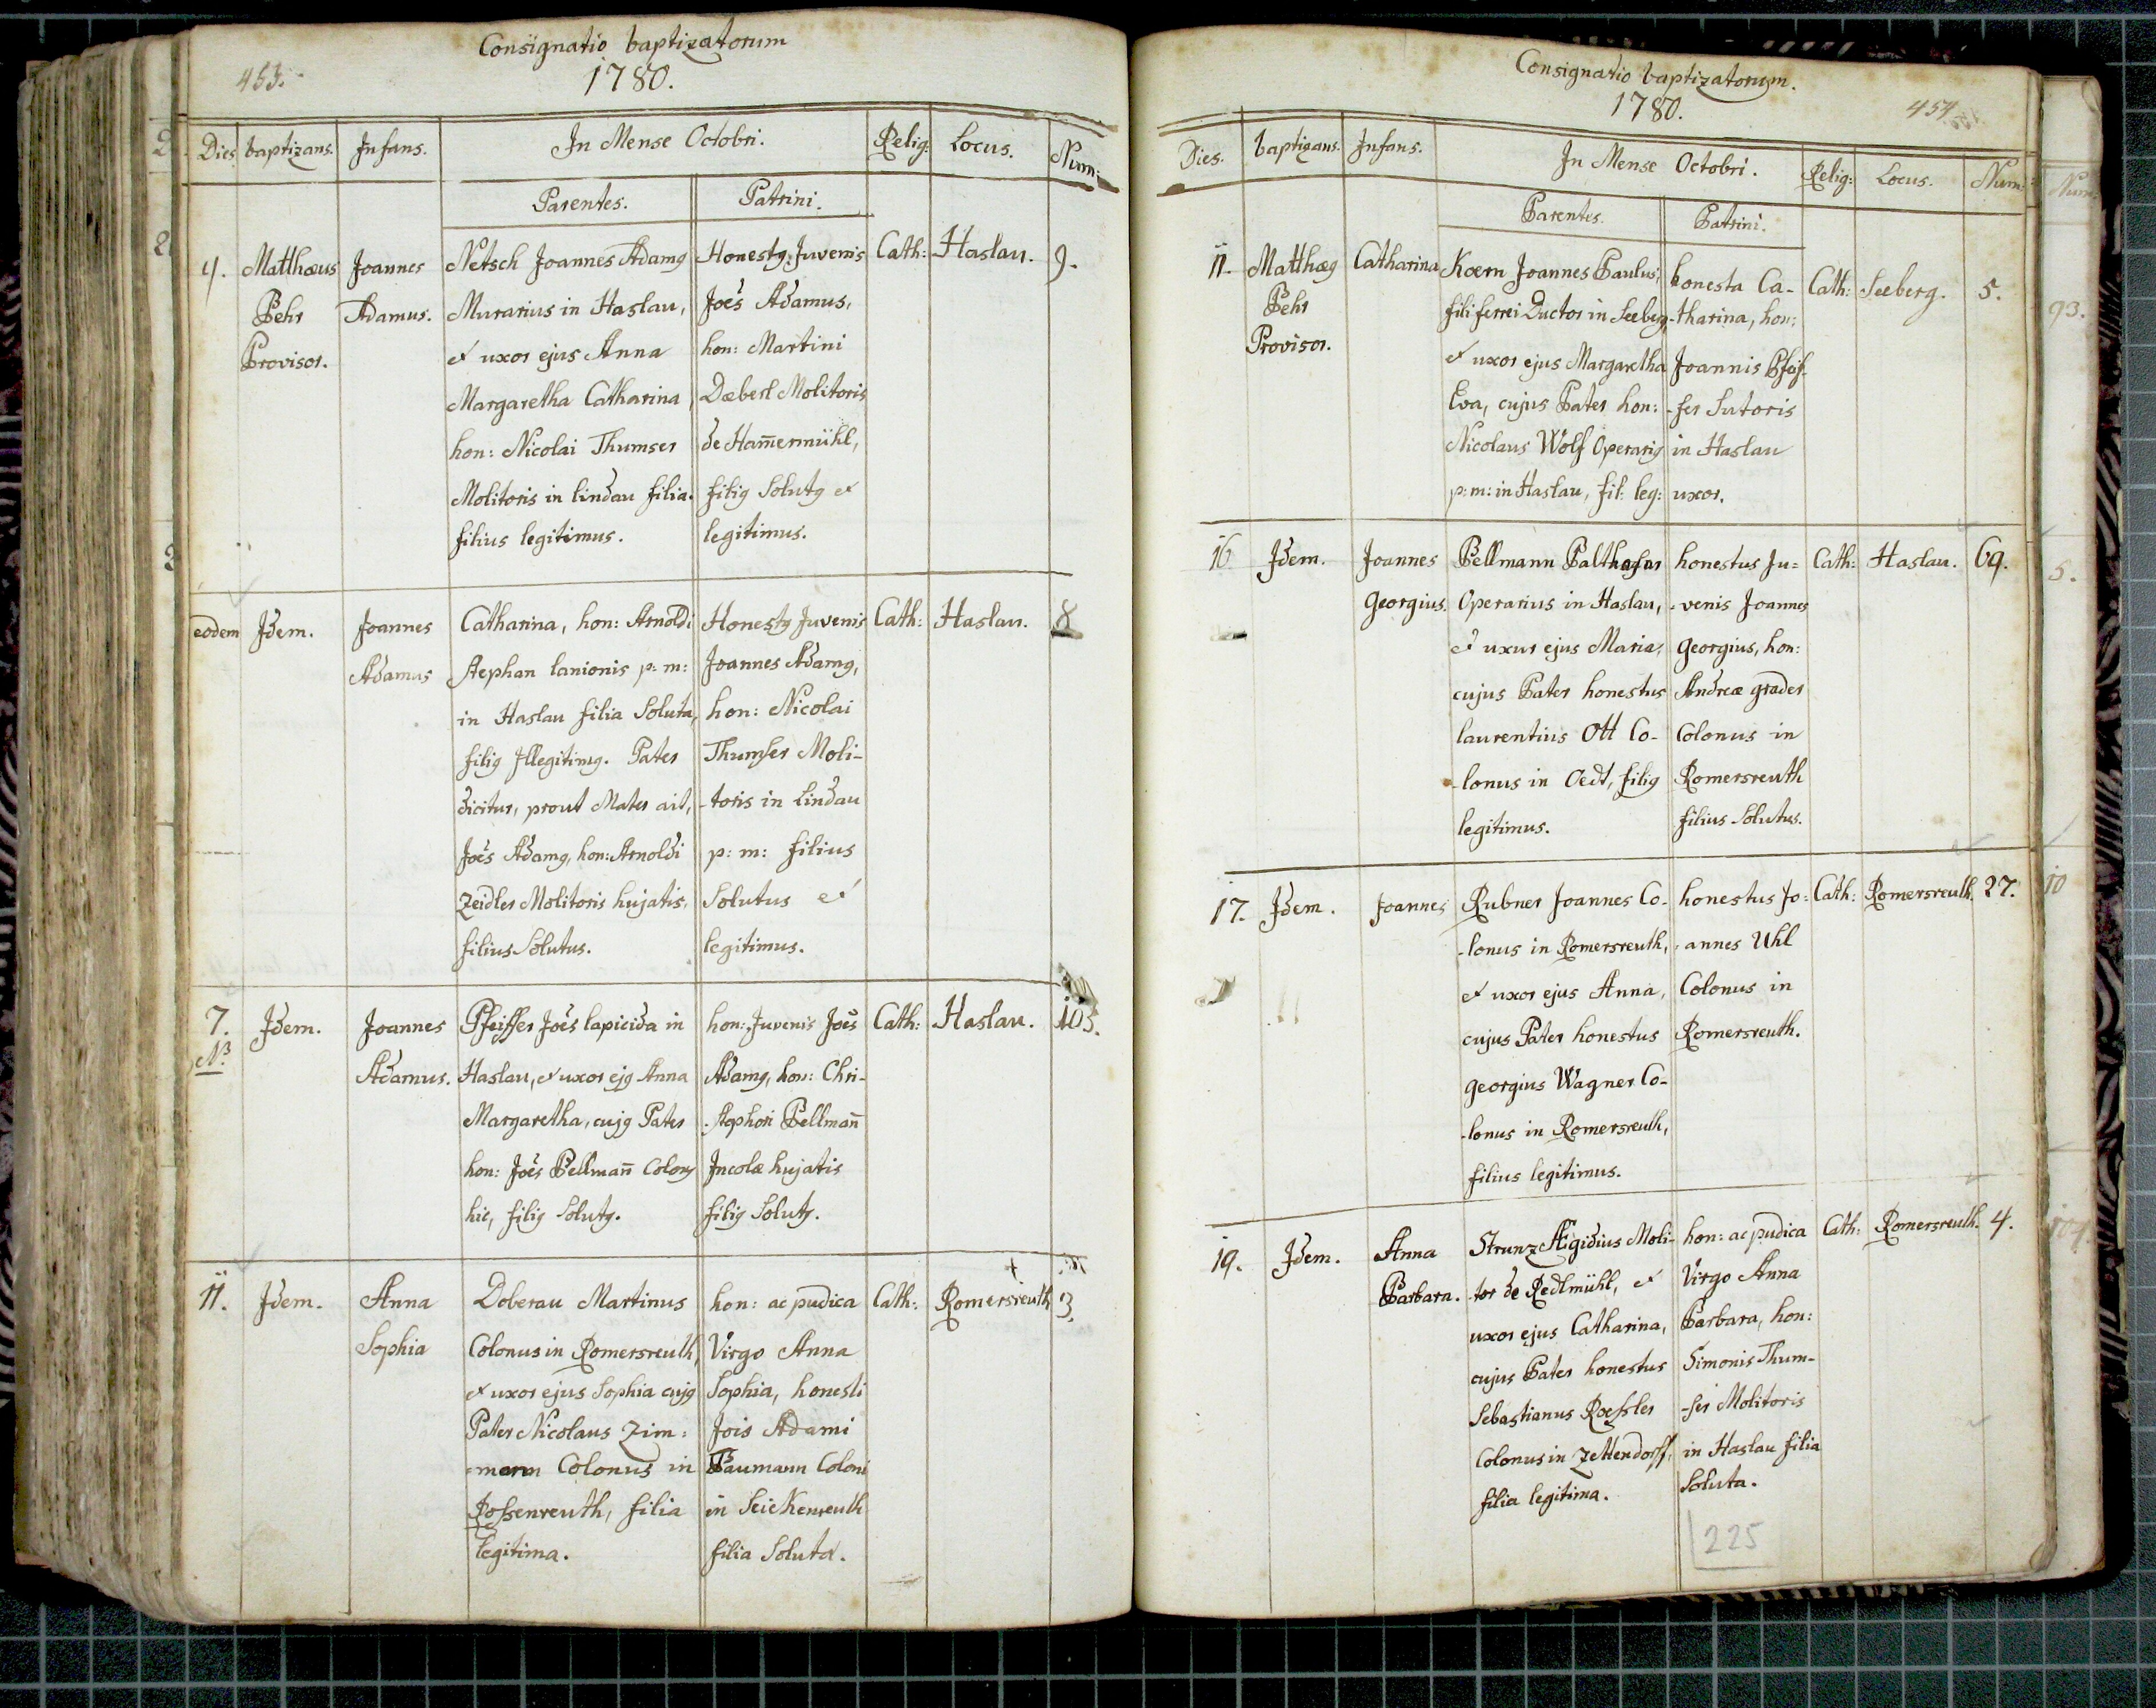 Consignatio baptizatorum
453.
1780.
Dies baptizans. Infans. In Mense Octobri. Relig: Locus. Num:
Parentes. Patrini.
4. Matthæus Pehr Provisor.
Joannes Adamus.
Netsch Joannes Adamg
Murarius in Haslau,
et uxor ejus Anna
Margaretha Catharina,
hon: Nicolai Thumser
Molitoris in lindau filia.
filius legitimus.
Honestg Juvenis
Joes Adamus,
hon: Martini
Dæberl Molitoris
de Ham̄ermühl,
filig Solutg et
legitimus.
Cath: Haslau. 9.
eodem Idem.
Joannes
Adamus
Catharina, hon: Arnoldi
Stephan lanionis p: m:
in Haslau filia Soluta,
filig Illegitimg. Pater
dicitur, prout Mater ait,
Joes Adamg, hon: Arnoldi
Zeidler Molitoris hujatis,
filius Solutus.
Honestg Juvenis
Joannes Adamg,
hon: Nicolai
Thumser Moli-
-toris in Lindau
p: m: filius
Solutus et
legitimus.
Cath: Haslau. 8
7. Idem.
NB
Joannes
Adamus.
Pfeiffer Joes lapicida in
Haslau, et uxor ejg Anna
Margaretha, cujg Pater
hon: Joes Pellman̄ Colong
hic, filig Solutg.
hon: Juvenis Joes
Adamg, hon: Chri-
-stophori Pellman̄
Incolæ hujatis
filig Solutg.
Cath: Haslau. 105.
11. Idem.
Anna
Sophia
Doberau Martinus
Colonus in Romersreuth,
et uxor ejus Sophia cujg
Pater Nicolaus Zim:
=mann Colonus in
Rossenreuth, filia
legitima.
hon: ac pudica
Virgo Anna
Sophia, honesti
Jois Adami
Baumann Coloni
in Seickenreuth
filia Soluta.
Cath: Romersreuth 3.
Consignatio baptizatorum.
1780. 454
Dies. baptizans. Infans. In Mense Octobri. Relig: Locus. Num:
Parentes. Patrini.
11. Matthæg
Pehr
Provisor.
Catharina
Koern Joannes Paulus,
fili ferrei Ductor in Seeberg
et uxor ejus Margaretha
Eva, cujus Pater hon:
Nicolaus Wolf Operarig
p: m: in Haslau, fil: leg:
honesta Ca-
-tharina, hon:
Joannis Pfeif-
-fer Sutoris
in Haslau
uxor.
Cath: Seeberg. 5.
16 Idem.
Joannes
Georgius.
Pellmann Balthasar
Operarius in Haslau,
et uxur ejus Maria,
cujus Pater honestus
laurentius Ott Co-
-lonus in Oedt, filig
legitimus.
honestus Ju=
-venis Joannes
Georgius, hon:
Andreæ grader
Colonus in
Romersreuth
filius Solutus.
Cath: Haslau. 69.
17. Idem. Joannes
Rubner Joannes Co-
-lonus in Romersreuth,
et uxor ejus Anna,
cujus Pater honestus
georgius Wagner Co-
-lonus in Romersreuth,
filius legitimus.
honestus Jo:
-annes Uhl
Colonus in
Romersreuth.
Cath: Romersreuth. 27.
19. Idem.
Anna
Barbara.
Strunz Ægidius Moli-
-tor de Redlmühl, et
uxor ejus Catharina,
cujus Pater honestus
Sebastianus Roessler
Colonus in Zettendorff,
filia legitima.
hon: ac pudica
Virgo Anna
Barbara, hon:
Simonis Thum-
-ser Molitoris
in Haslau filia
Soluta.
Cath: Romersreuth. 4.
225
Num.
93.
5.
10
104.